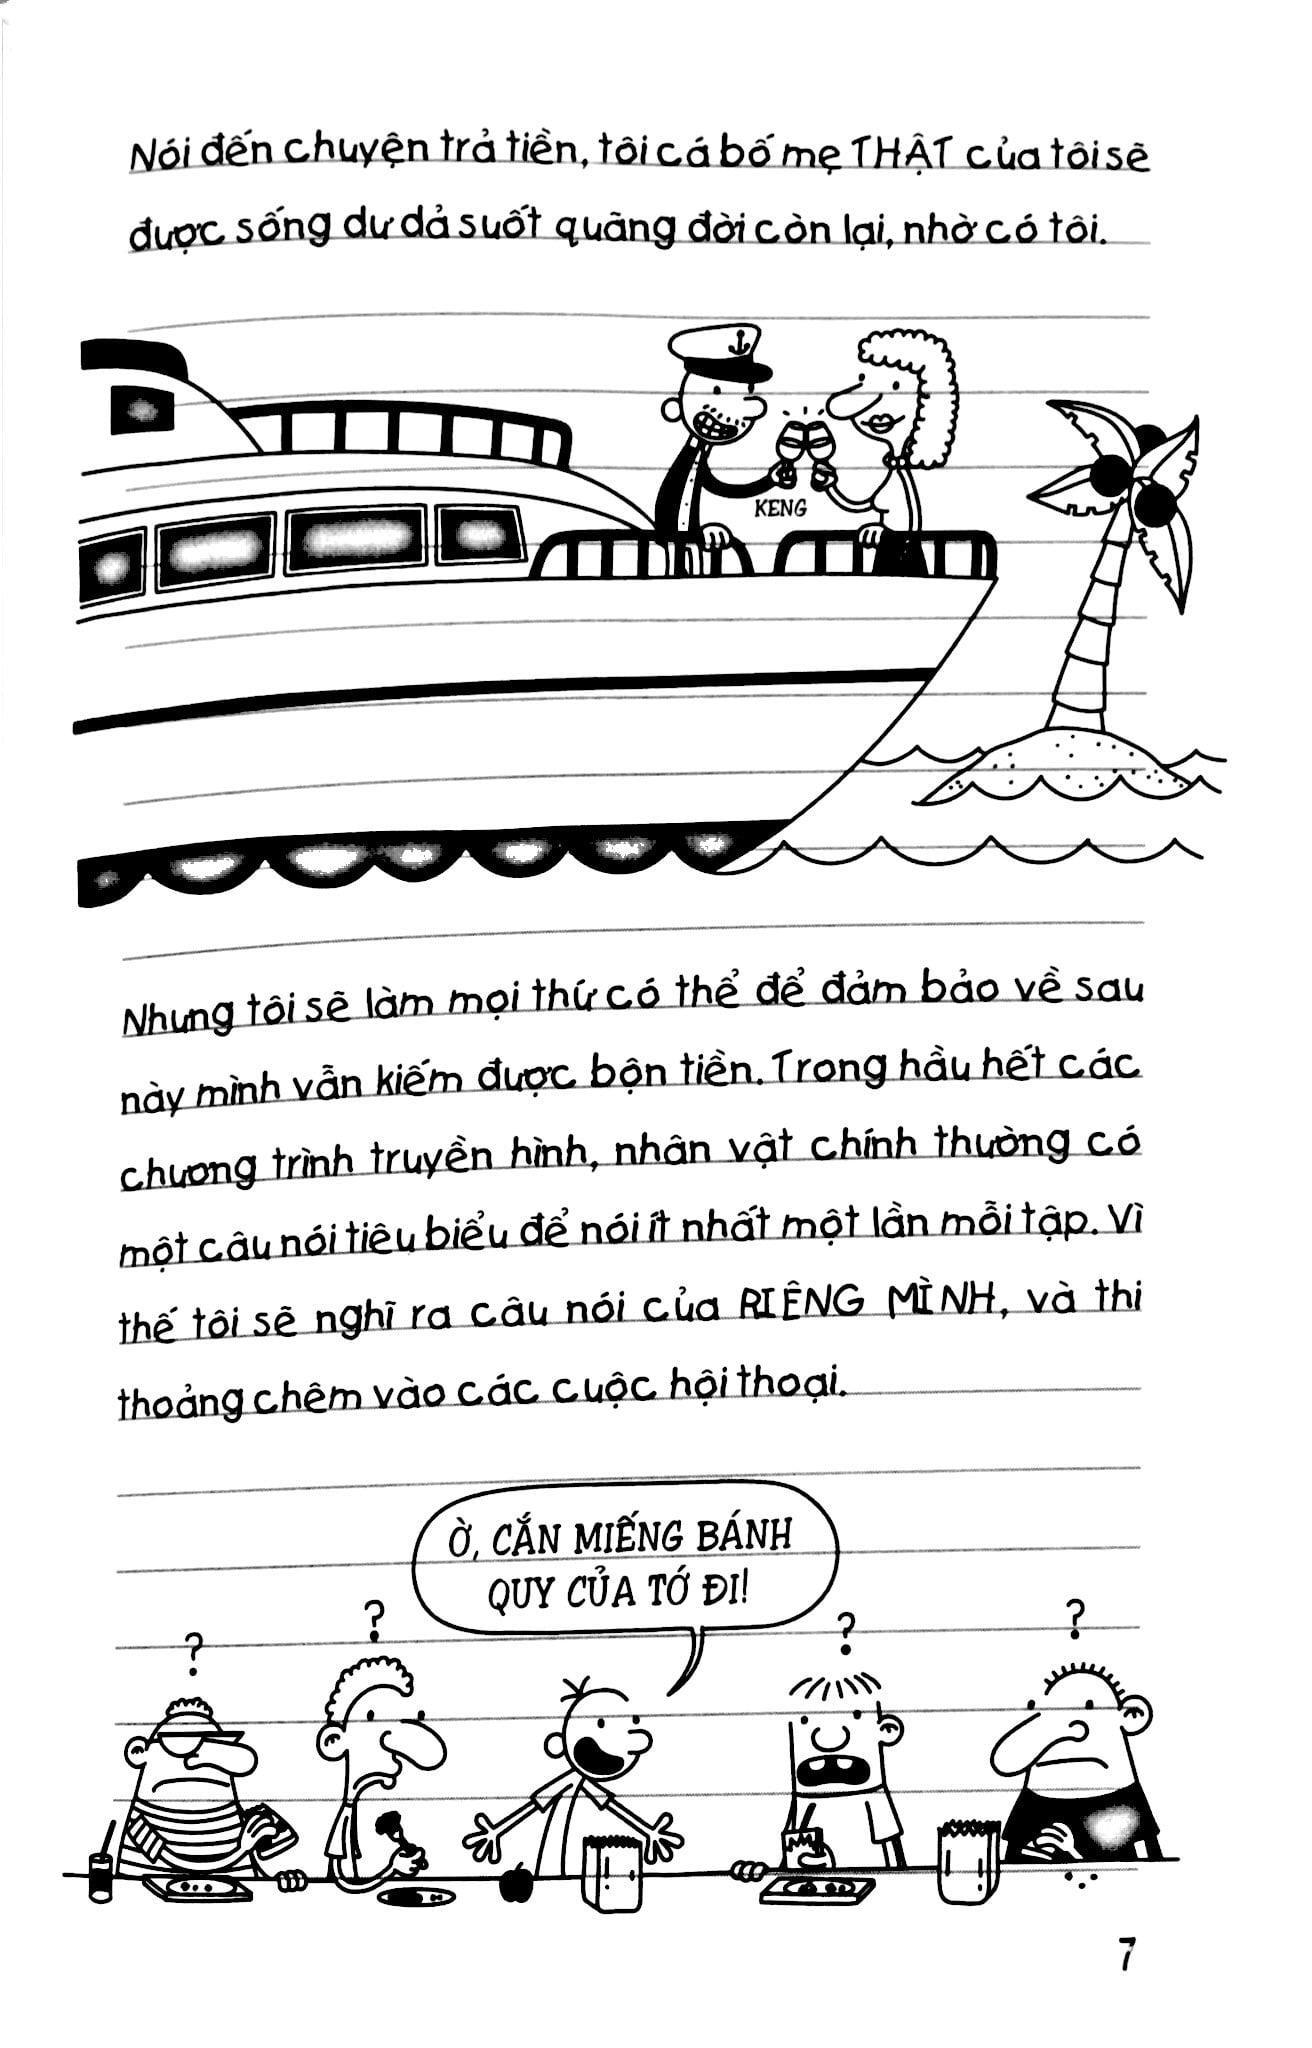 Nói đến chuyện trả tiền, tôi cá bố mẹ THẬT của tôi sẽ
được sống dư dả suốt quãng đời còn lại, nhờ có tôi.
KENG
Nhưng tôi sẽ làm mọi thứ có thể để đảm bảo về sau
này mình vẫn kiếm được bộn tiền. Trong hầu hết các
chương trình truyền hình, nhân vật chính thường có
một câu nói tiêu biểu để nói ít nhất một lần mỗi tập. Vì
thế tôi sẽ nghĩ ra câu nói của RIÊNG MÌNH, và thi
thoảng chêm vào các cuộc hội thoại.
Ờ, CẮN MIẾNG BÁNH
QUY CỦA TỚ ĐI!
?
?
?
?
7